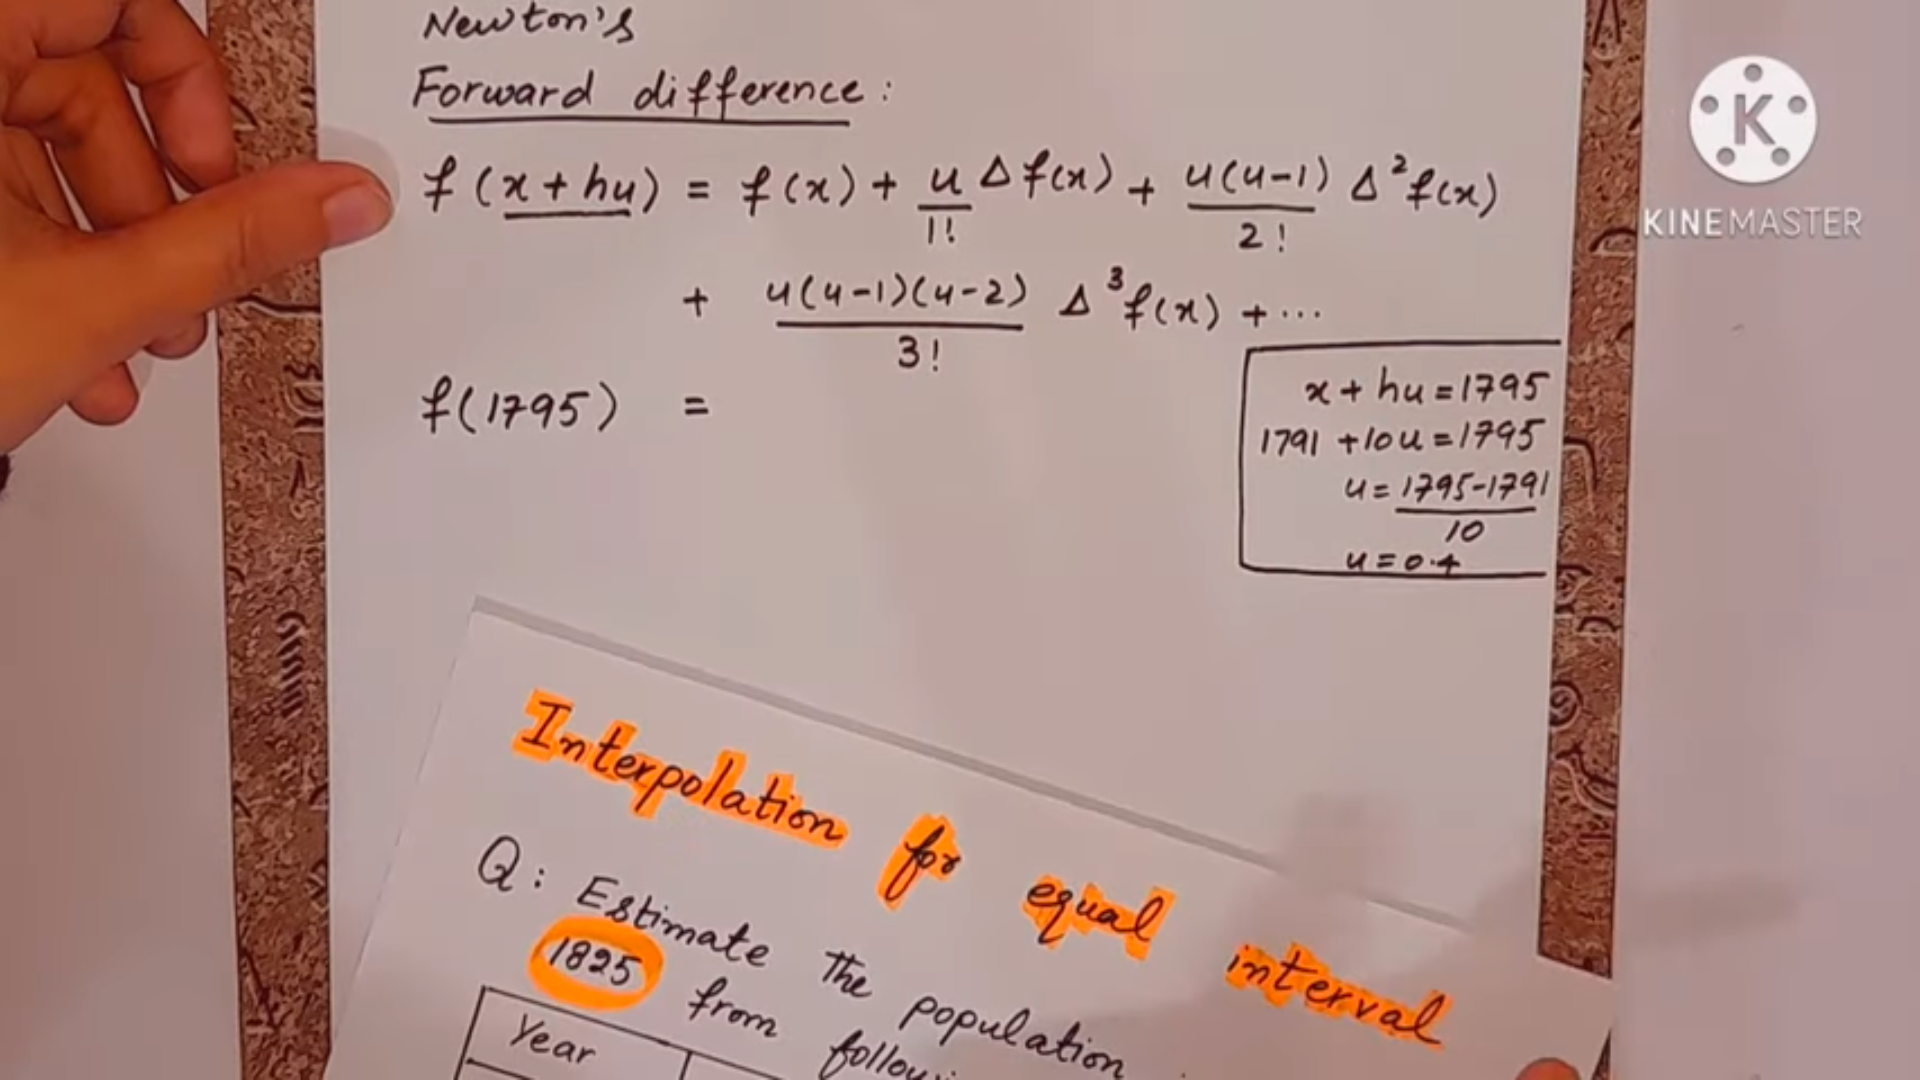 Newton's
Forward difference:
f(x+hu) = f(x) + u/1! Δf(x) + u(u-1)/2! Δ²f(x)
+ u(u-1)(u-2)/3! Δ³f(x) + ...
f(1795) =
x + hu = 1795
1791 + 10u = 1795
u = 1795-1791/10
u = 0.4
Interpolation for equal interval
Q: Estimate the population
1825 from
Year
K
KINEMASTER